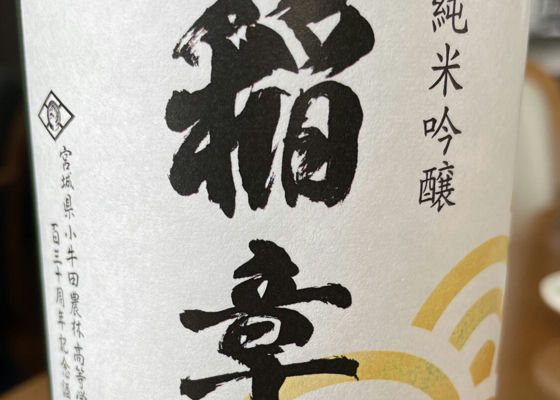 純米吟醸
稲章
宮城県小牛田農林高等学
百三十周年記念酒